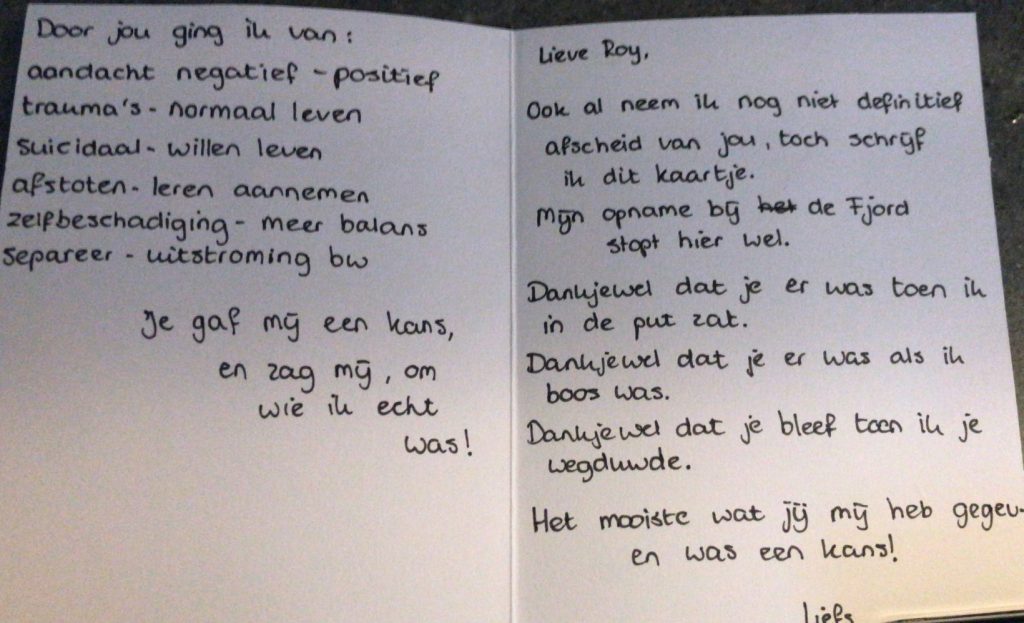 Door jou ging ik van:
aandacht negatief - positief
trauma's - normaal leven
suicidaal - willen leven
afstoten - leren aannemen
zelfbeschadiging - meer balans
separeer - uitstroming bw
Je gaf mij een kans,
en zag mij, om
wie ik echt
was!
Lieve Roy,
Ook al neem ik nog niet definitief
afscheid van jou, toch schrijf
ik dit kaartje.
Mijn opname bij het de Fjord
stopt hier wel.
Dankjewel dat je er was toen ik
in de put zat.
Dankjewel dat je er was als ik
boos was.
Dankjewel dat je bleef toen ik je
wegduwde.
Het mooiste wat jij mij heb gegev-
en was een kans!
Liefs